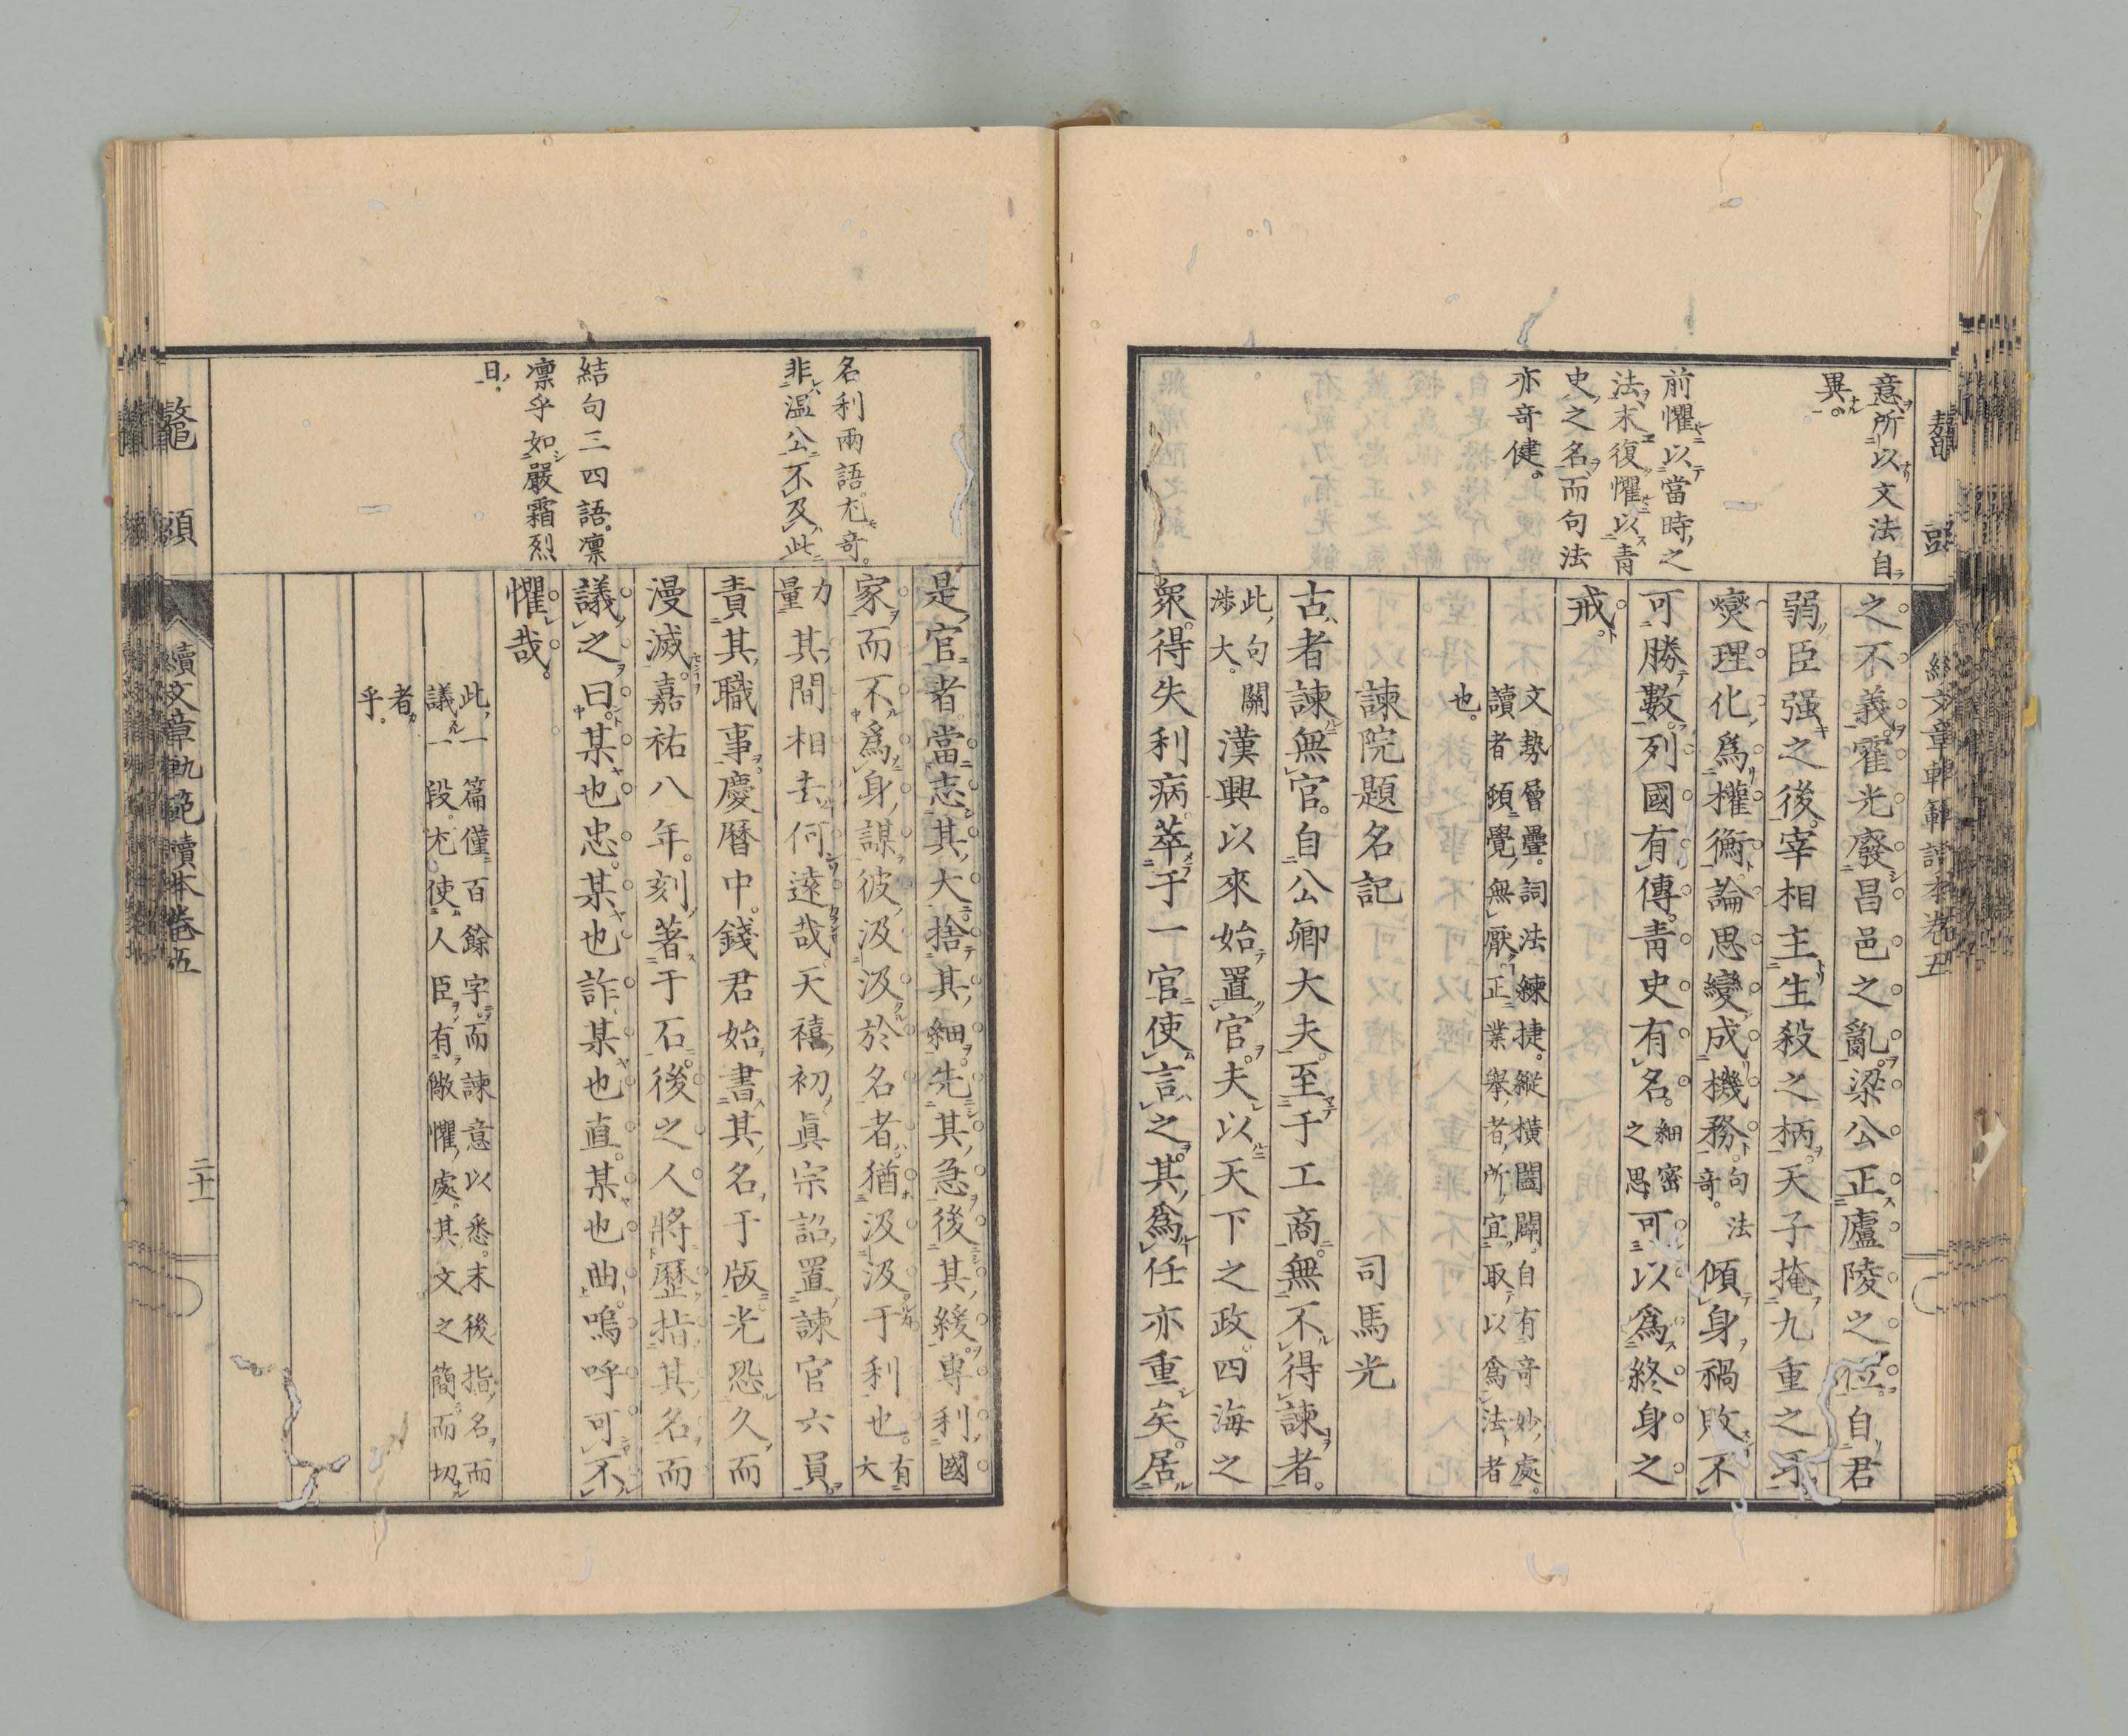 意所以文法自
異。
前懼以當時之
法末復懼以青
史之名而句法
亦奇健。
之不義。霍光廢昌邑之亂。梁公正廬陵之位。自君
弱臣强之後。宰相主生殺之柄。天子掩九重之耳
燮理化。爲權衡。論思變。成機務。句法奇。傾身禍敗。不
可勝數。列國有傳。青史有名。細密之思。可以爲終身之
戒。
文勢層疊。詞法練捷。縱横闔闢。自有奇妙處。
讀者頻覺無厭。正業舉者所宜取以爲法者
也。
諫院題名記　司馬光
古者諫無官。自公卿大夫。至于工商。無不得諫者。
此句關渉大。漢興以來始置官。夫以天下之政。四海之
衆。得失利病。萃于一官使言之。其爲任亦重矣。居
鼇頭
續文章軌範讀本卷五
名利兩語。尤奇。
非温公不及此
結句三四語。凛
凛乎如嚴霜烈
日。
是官者當志其大。捨其細。先其急。後其緩。專利國
家。而不爲身謀。彼汲汲於名者。猶汲汲于利也。有大
力量其間相去何遠哉。天禧初。眞宗詔置諫官六員。
責其職事。慶曆中。錢君始書其名于版。光恐久而
漫滅。嘉祐八年。刻著于石。後之人將歴指其名而
議之曰。某也忠。某也詐。某也直。某也曲。嗚呼。可不
懼哉。
此一篇僅百餘字。而諫意以悉。末後指名而
議一段。尤使人臣有儆懼處。其文之簡而切
者
乎。
鼇頭
續文章軌範讀本卷五
二十一